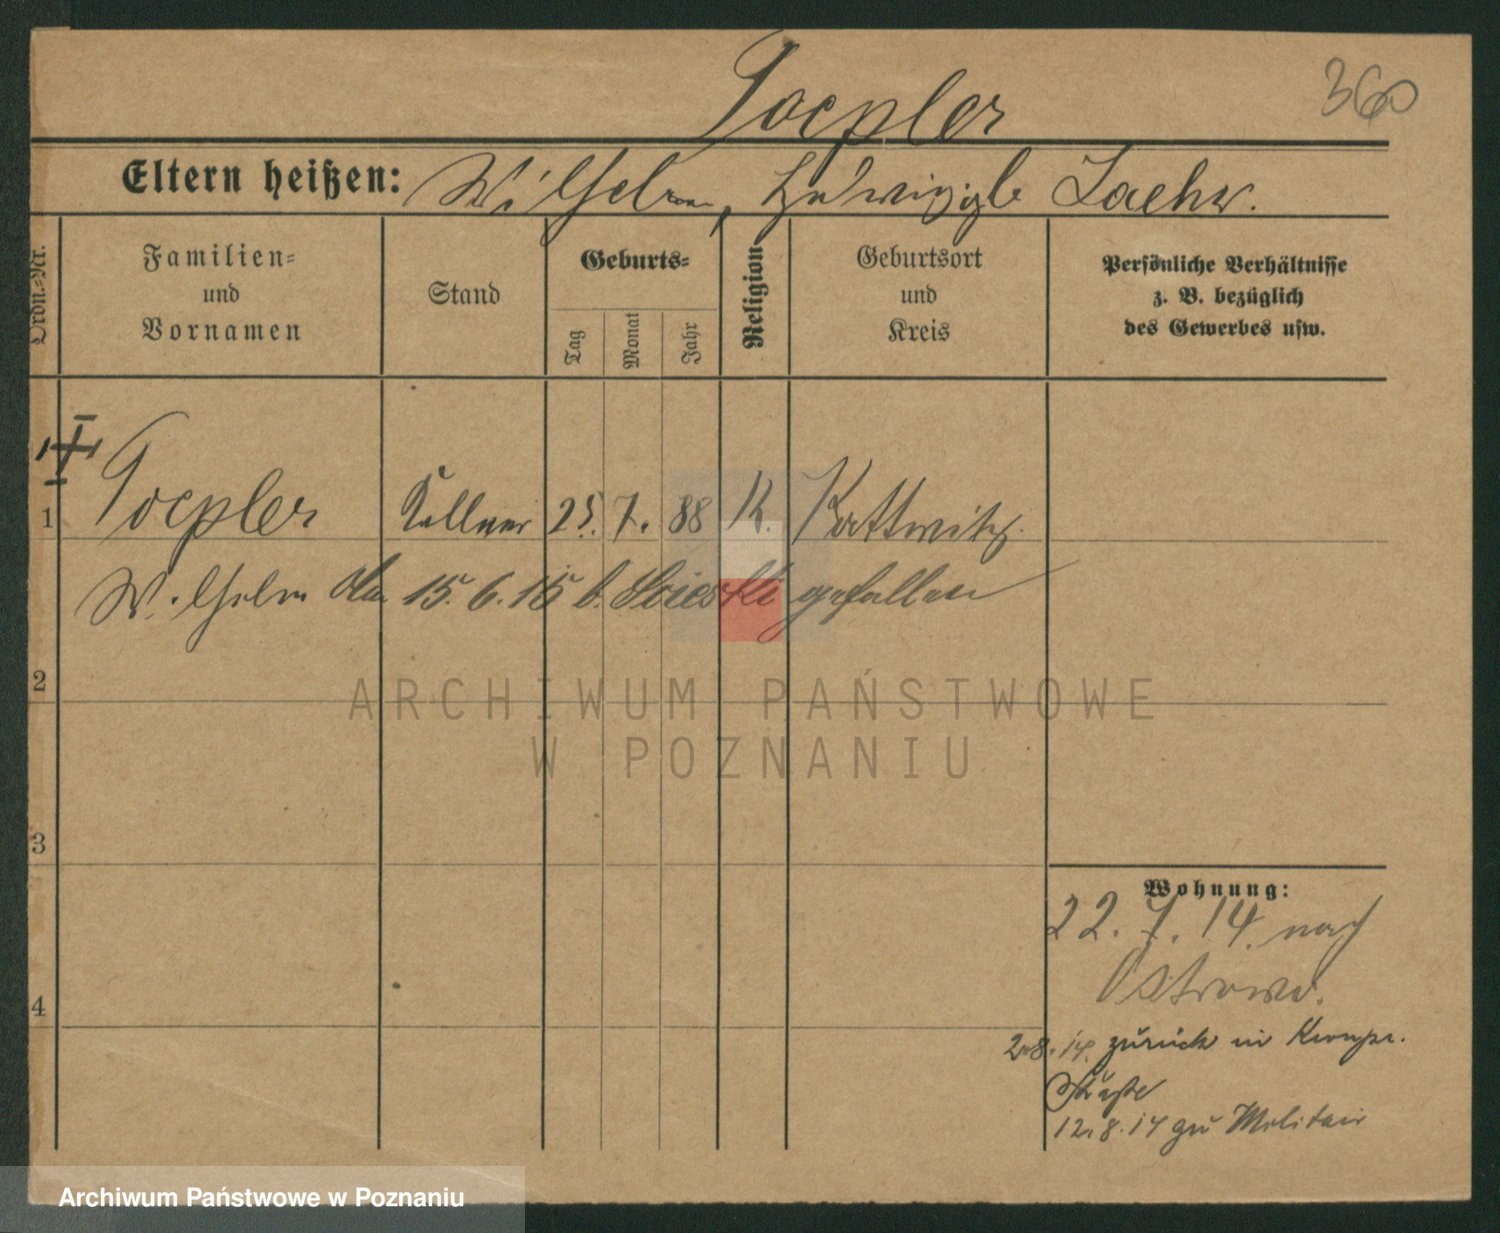 Toepler
360
Eltern heißen: Wilhelm, Hedwig geb. Jachw.
Ordn.-Nr.
Familien-
und
Vornamen
Stand
Geburts-
Tag
Monat
Jahr
Religion
Geburtsort
und
Kreis
Persönliche Verhältnisse
z. B. bezüglich
des Gewerbes usw.
1 Toepler Kellner 25. 7. 88 K. Kattwitz.
Wilhelm 15. 6. 15 b. gefallen
2
3
4
Wohnung:
22. 7. 14 nach
Ostrowo.
2. 8. 14. zurück in
Straße
12. 8. 14 zu Militair
ARCHIWUM PAŃSTWOWE
W POZNANIU
Archiwum Państwowe w Poznaniu